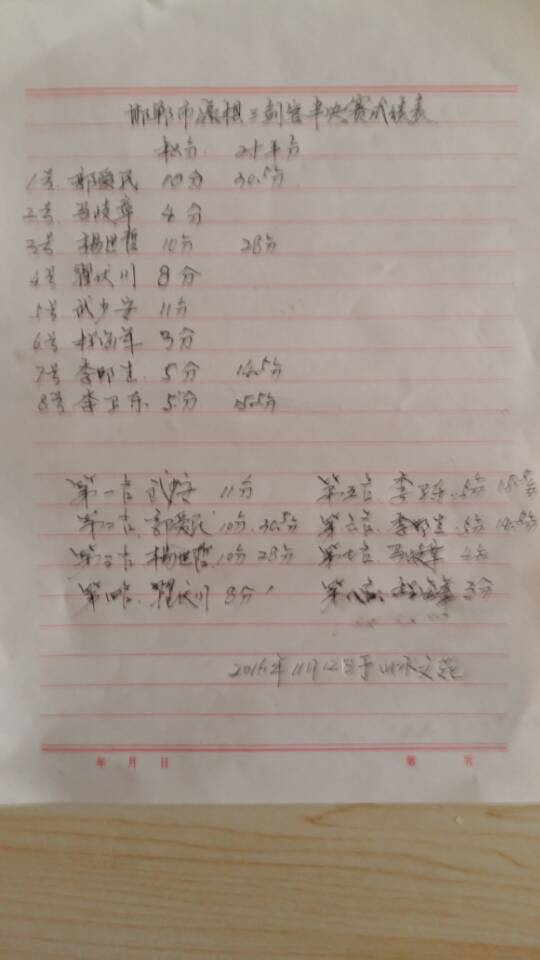 邯郸市象棋三剑客半决赛成绩表
积分 对手分
1号 郭爱民 10分 30.5分
2号 马陵章 4分
3号 杨世哲 10分 28分
4号 翟伏川 8分
5号 武少 11分
6号 3分
7号 李邯生 5分 14.5分
8号 李卫东 5分 15.5分
第一名 武 11分 第五名 李卫东 5分 15.5分
第二名 郭爱民 10分 30.5分 第六名 李邯生 5分 14.5分
第三名 杨世哲 10分 28分 第七名 马陵章 4分
第四名 翟伏川 8分 第八名 3分
2016年11月12日于山水文苑
年 月 日 第 页